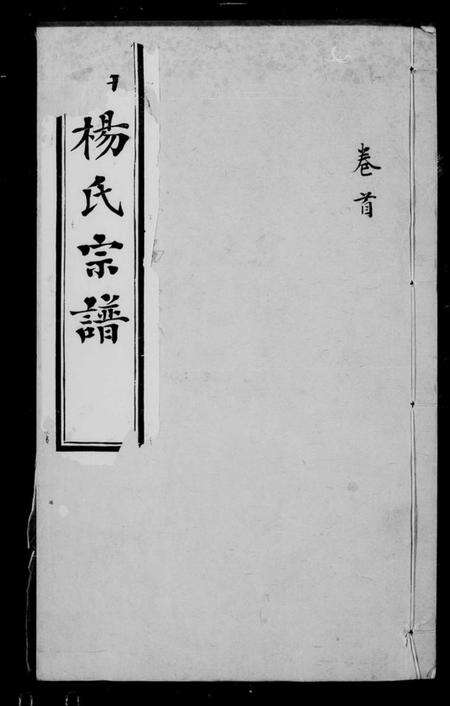 卷首
楊氏宗譜